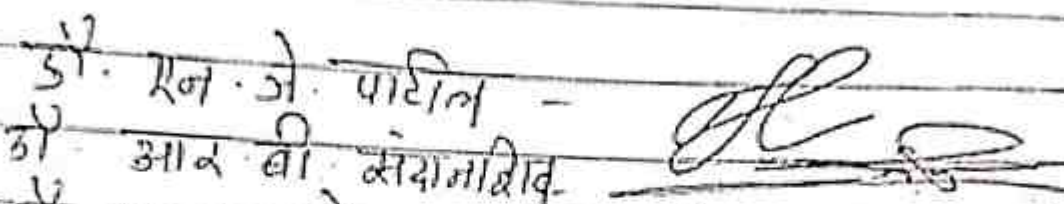 डॉ. एन. जे. पाटील -
डॉ आर. बी. संदानशिव -